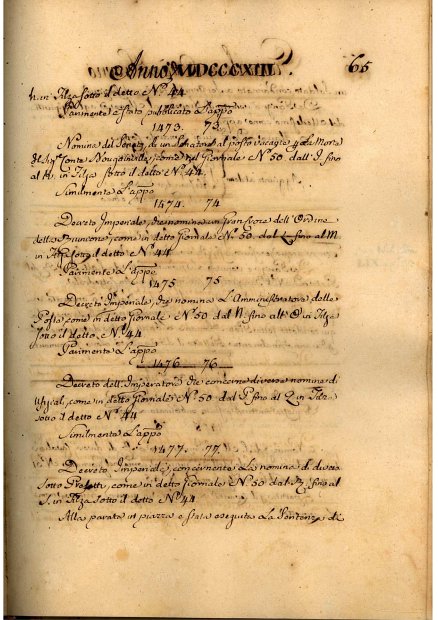 Anno MDCCCXIII. 65
in Filza sotto il detto Nº. 44
Parimente è stato pubblicato L'appº
1473. 73.
Nomina del Senato, di un Senatore al posto vacante La Morte
del Sigr Conte, come nel Giornale Nº 50 dall' I. sino
al in Filza sotto il detto Nº. 44.
Similmente L'appº
1474. 74
Decreto Imperiale, che nomina un Gran dell' Ordine
della, come in detto Giornale Nº. 50. dal L. sino al M.
in sotto il detto Nº 44
Parimente L'appº
1475. 75
Decreto Imperiale, che nomina L'Amministratore delle
Poste, come in detto Giornale Nº 50 dal N. sino all' O in Filza
sotto il detto Nº. 44
Parimente L'appº
1476. 76
Decreto dell' Imperatore che concerne diverse nomine di
Uffiziali, come in detto Giornale Nº 50 dal P. sino al Q in Filza
sotto il detto Nº 44
Similmente L'appº
1477. 77.
Decreto Imperiale, concernente La nomina di diversi
Sotto Prefetti, come in detto Giornale Nº 50 dal R. sino al
S. in Filza sotto il detto Nº. 44
Alla parata in piazza è stata eseguita La Sentenza di